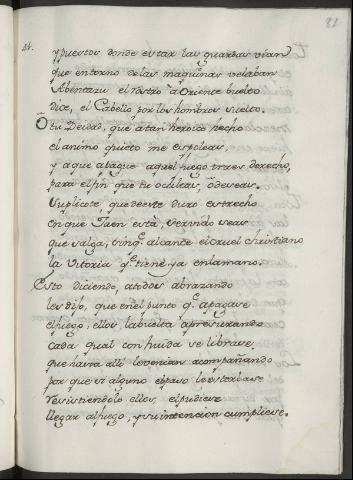 81
84.
y puestos donde estar las guardas vian
que entorno de las maquinas velaban
Abentazu el rostro a Oriente buelto
dice, el Cabello por los hombros suelto.
O tu Deidad, que a tan heroico hecho
el animo quieto me espoleas,
y a que apague aquel fuego vas derecho,
para el fin que tu ochleas, õ deseas.
Suplicote que deeste duro estrecho
en que Jaen està, servido seas
que salga, sinq.e alcance el cruel christiano
la Vitoria q.e tiene ya en la mano.
Esto diciendo, a todos abrazando
les dijo, que en el punto q.e apagase
el fuego, ellos la buelta apresurando
cada qual con huida se librase
que havra allì le venian acompañando
por que si alguno el paso le esterbase
resistiendolo ellos, el pudiese
llegar al fuego, y su intencion cumpliese.